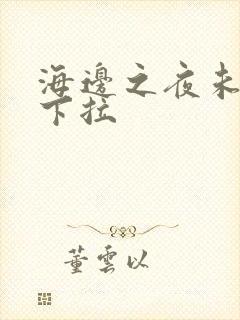 海邊之夜未
下拉
董雲以